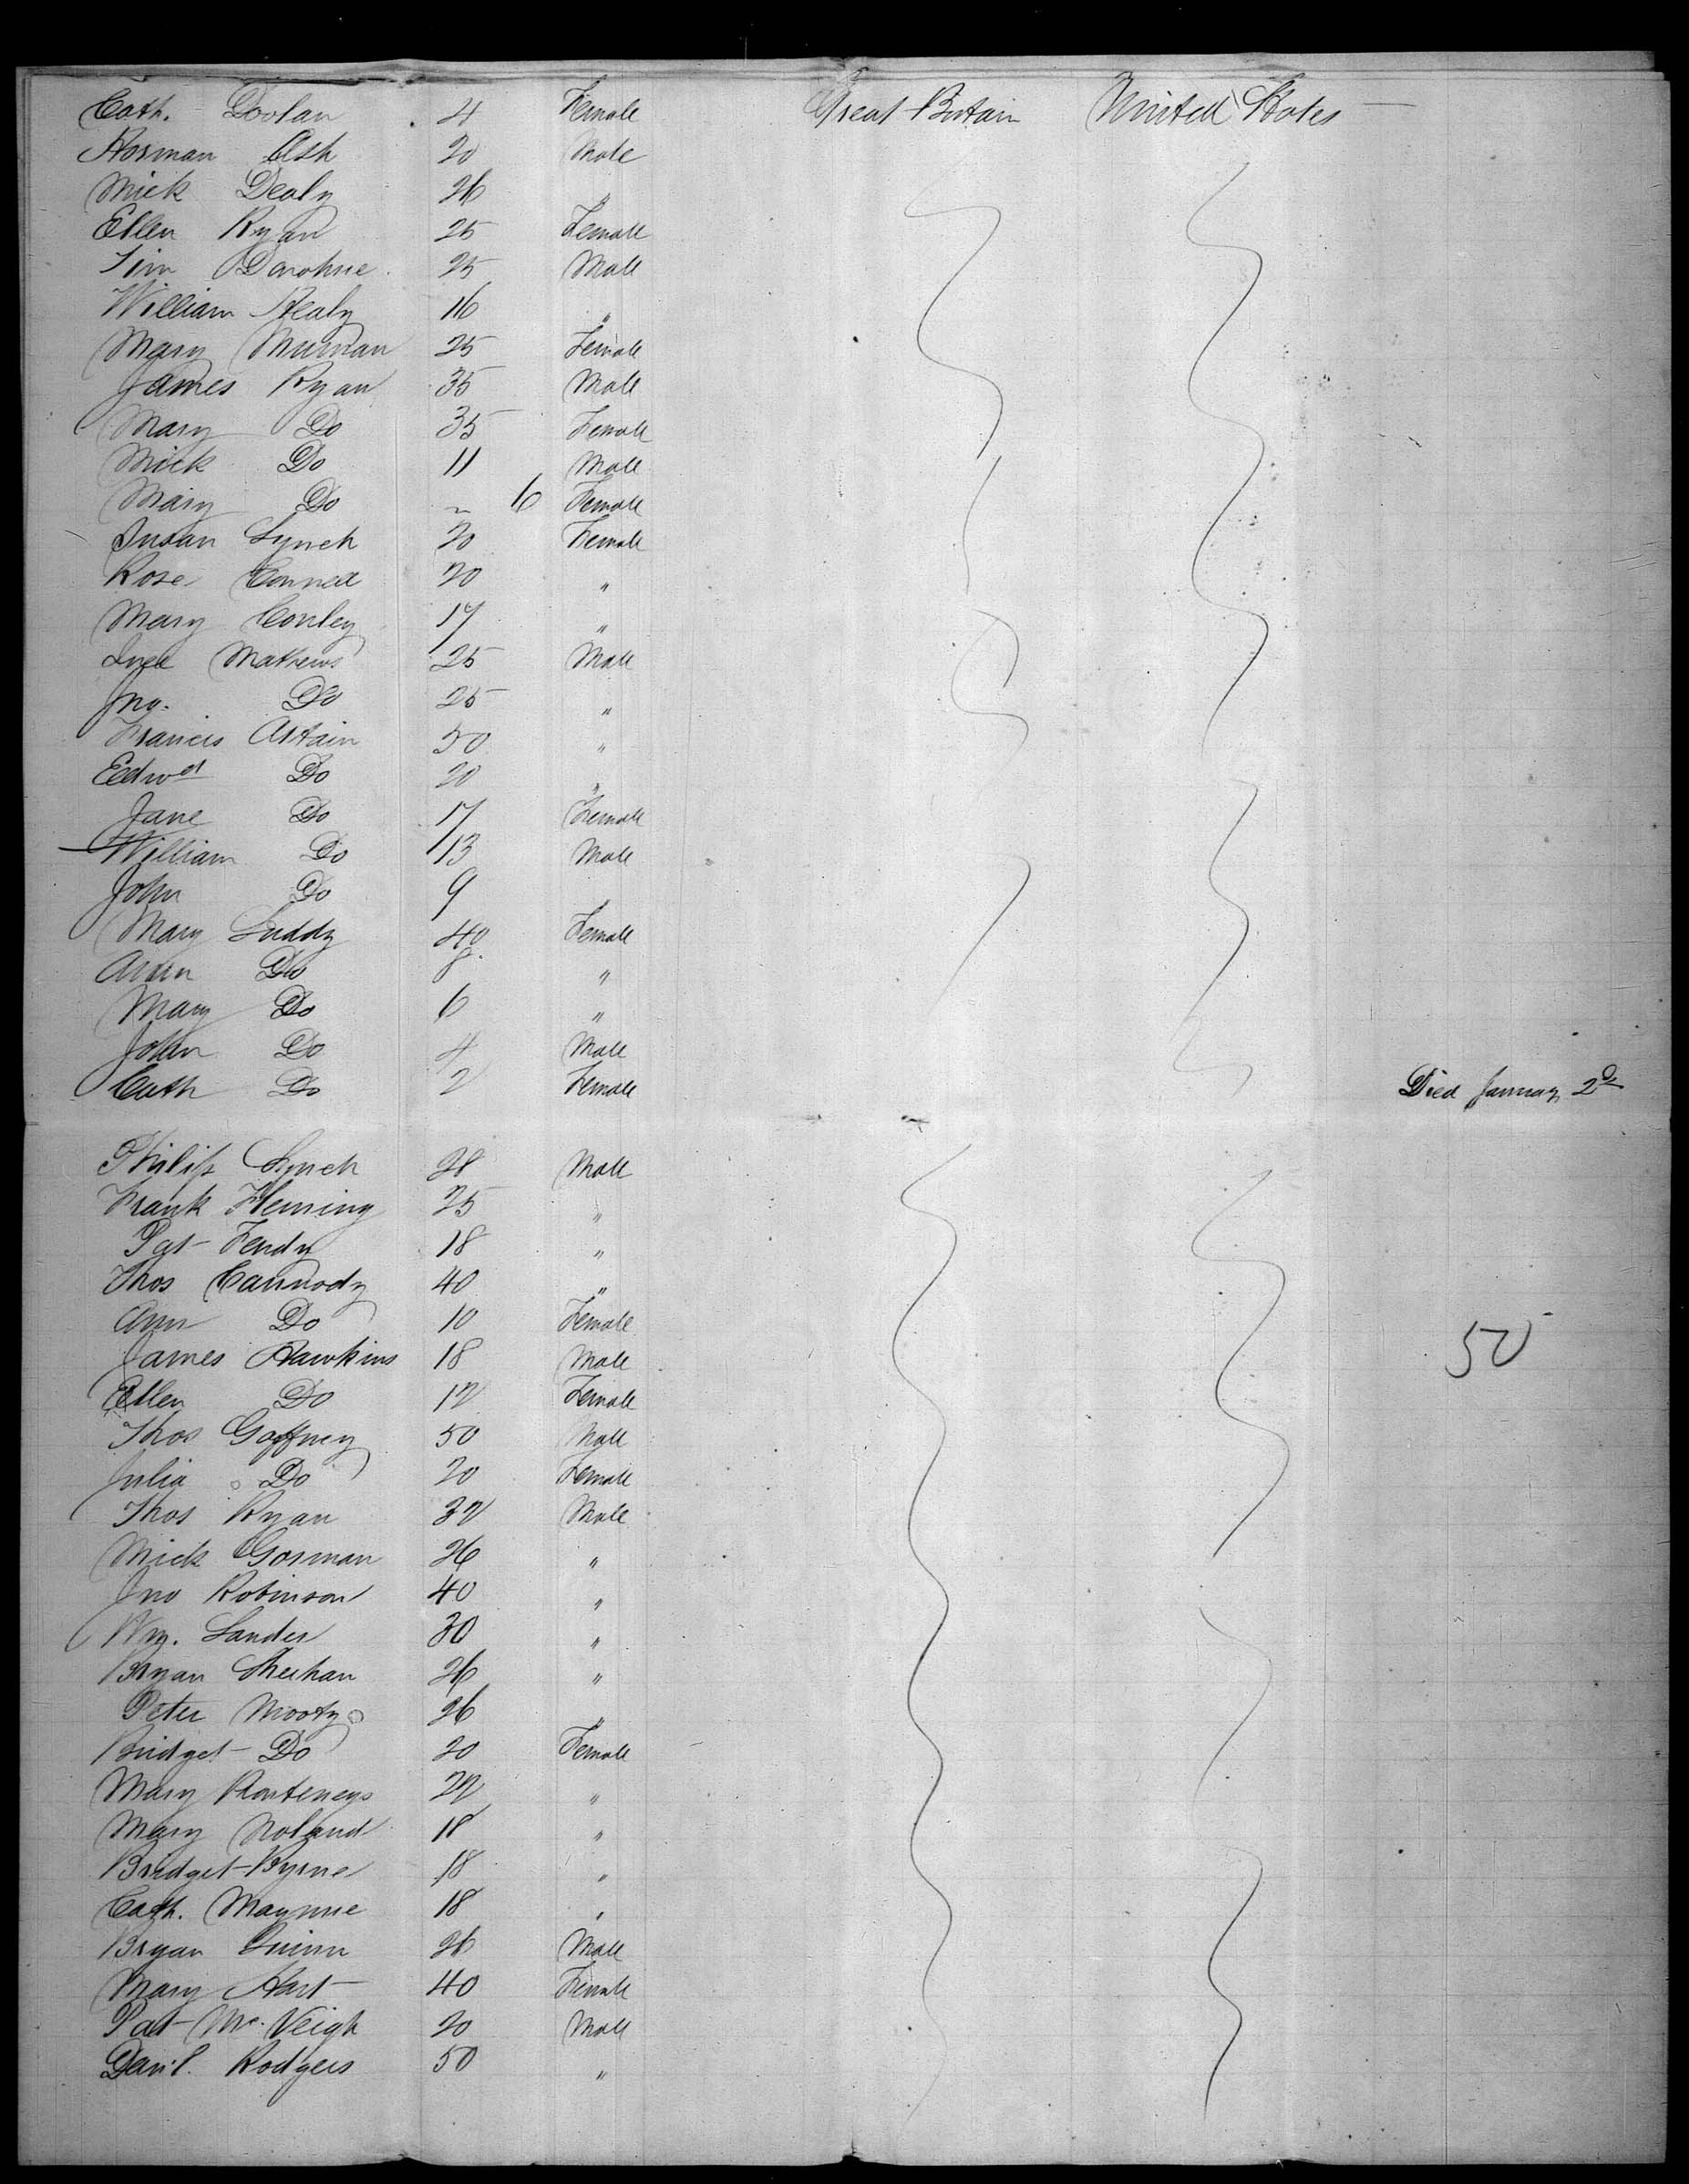 Cath. Doolan 4 Female Great Britain United States
Norman Ash 20 Male
Mick Dealy 26 "
Ellen Ryan 25 Female
Tim Donohue 25 Male
William Healy 16 "
Mary Murnan 25 Female
James Ryan 35 Male
Mary Do 35 Female
Mick Do 11 Male
Mary Do 6 Female
Susan Lynch 20 Female
Rose 20 "
Mary Conley 17 "
Mathews 25 Male
Jno. Do 25 "
Francis Artain 50 "
Edwd Do 20 "
Jane Do 17 Female
William Do 13 Male
John Do 9 "
Mary Luddy 40 Female
Ann Do 8 "
Mary Do 6 "
John Do 4 Male
Cath Do 2 Female Died January 2d
Philip Lynch 28 Male
Frank Fleming 25 "
Pat Fendy 18 "
Thos Carmody 40 "
Ann Do 10 Female
James Hawkins 18 Male 50
Ellen Do 12 Female
Thos Gaffney 50 Male
Julia Do 20 Female
Thos Ryan 32 Male
Mick Gorman 26 "
Jno Robinson 40 "
Wm. Lander 30 "
Bryan Sheehan 26 "
Peter Mooty 26 "
Bridget Do 20 Female
Mary 22 "
Mary Noland 18 "
Bridget Byrne 18 "
Cath. 18 "
Bryan Quinn 26 Male
Mary Hart 40 Female
Pat Mc. Veigh 20 Male
Danl. Rodgers 50 "